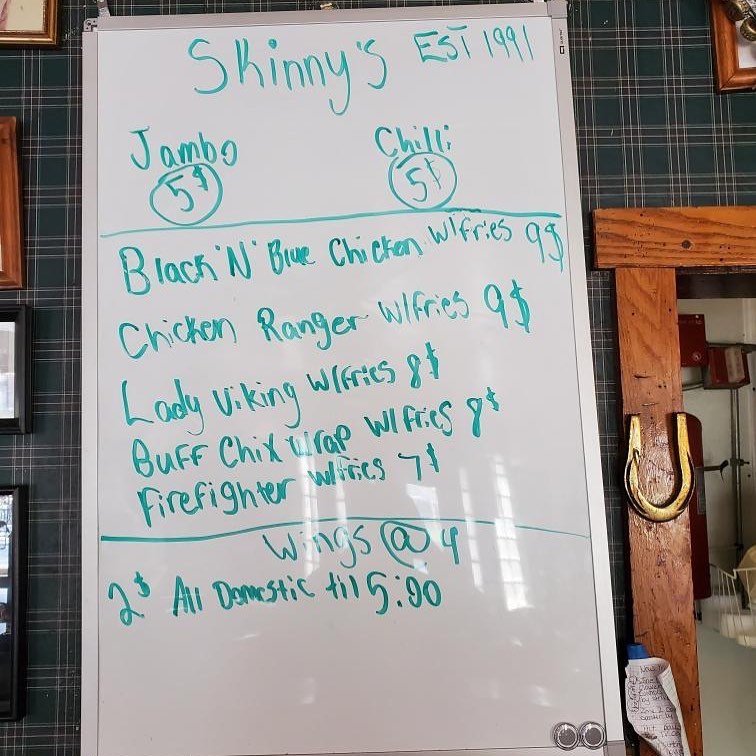 Skinny's EST 1991
Jambo Chilli
5$ 5$
Black 'N' Blue Chicken w/fries 9$
Chicken Ranger w/fries 9$
Lady Viking w/fries 8$
Buff Chix Wrap w/fries 8$
Firefighter w/fries 7$
Wings @ 4
2$ All Domestic til 5:00